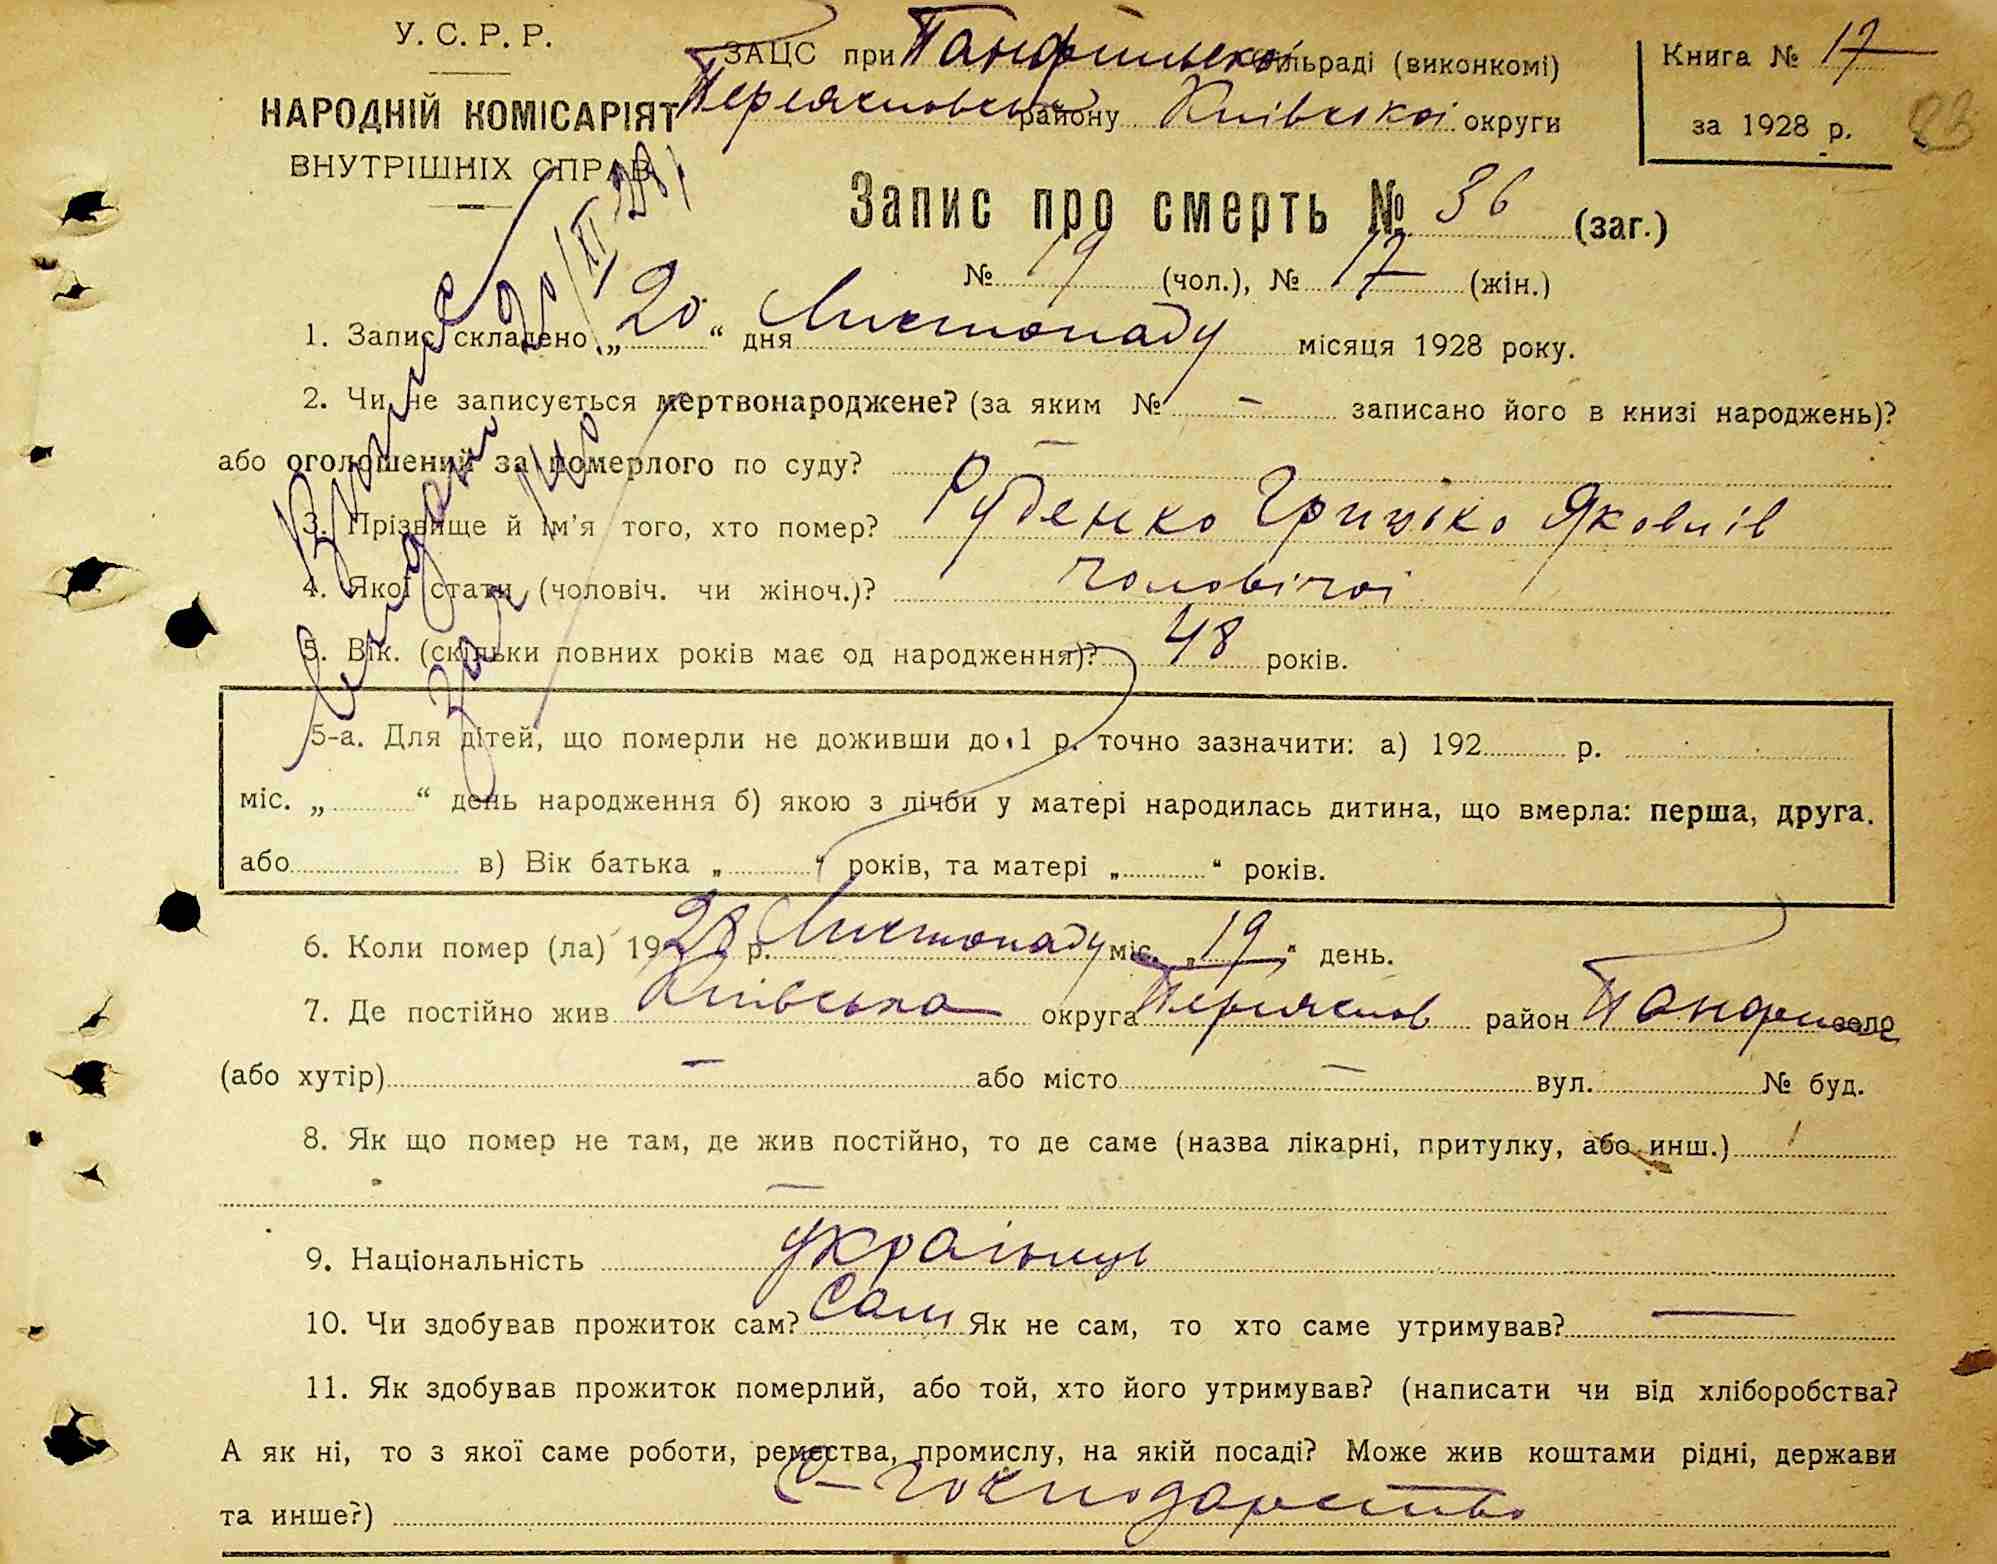 У. С. Р. Р.
НАРОДНІЙ КОМІСАРІЯТ
ВНУТРІШНІХ СПРАВ
ЗАЦС при Панфильській сільраді (виконкомі)
Переяславськ району Київської округи
Книга № 17
за 1928 р.
83
Запис про смерть № 36 (заг.)
№ 19 (чол.), № 17 (жін.)
1. Запис складено „20“ дня Листопаду місяця 1928 року.
2. Чи не записується мертвонароджене? (за яким № - записано його в книзі народжень)?
або оголошений за померлого по суду? —
3. Прізвище й ім’я того, хто помер? Руденко Грицько Яковлів
4. Якої стати (чоловіч. чи жіноч.)? чоловічої
5. Вік. (скільки повних років має од народження)? 48 років.
5-а. Для дітей, що померли не доживши до 1 р. точно зазначити: а) 192 р.
міс. „ “ день народження б) якою з лічби у матері народилась дитина, що вмерла: перша, друга.
або в) Вік батька „ “ років, та матері „ “ років.
6. Коли помер (ла) 1928 р. Листопаду міс. „19“ день.
7. Де постійно жив Київська округа Переяслов район Панфили село
(або хутір) — або місто — вул. № буд.
8. Як що помер не там, де жив постійно, то де саме (назва лікарні, притулку, або инш.)
—
9. Національність українць
10. Чи здобував прожиток сам? Сам Як не сам, то хто саме утримував? —
11. Як здобував прожиток померлий, або той, хто його утримував? (написати чи від хліборобства?
А як ні, то з якої саме роботи, ремества, промислу, на якій посаді? Може жив коштами рідні, держави
та инше?) С-господарство